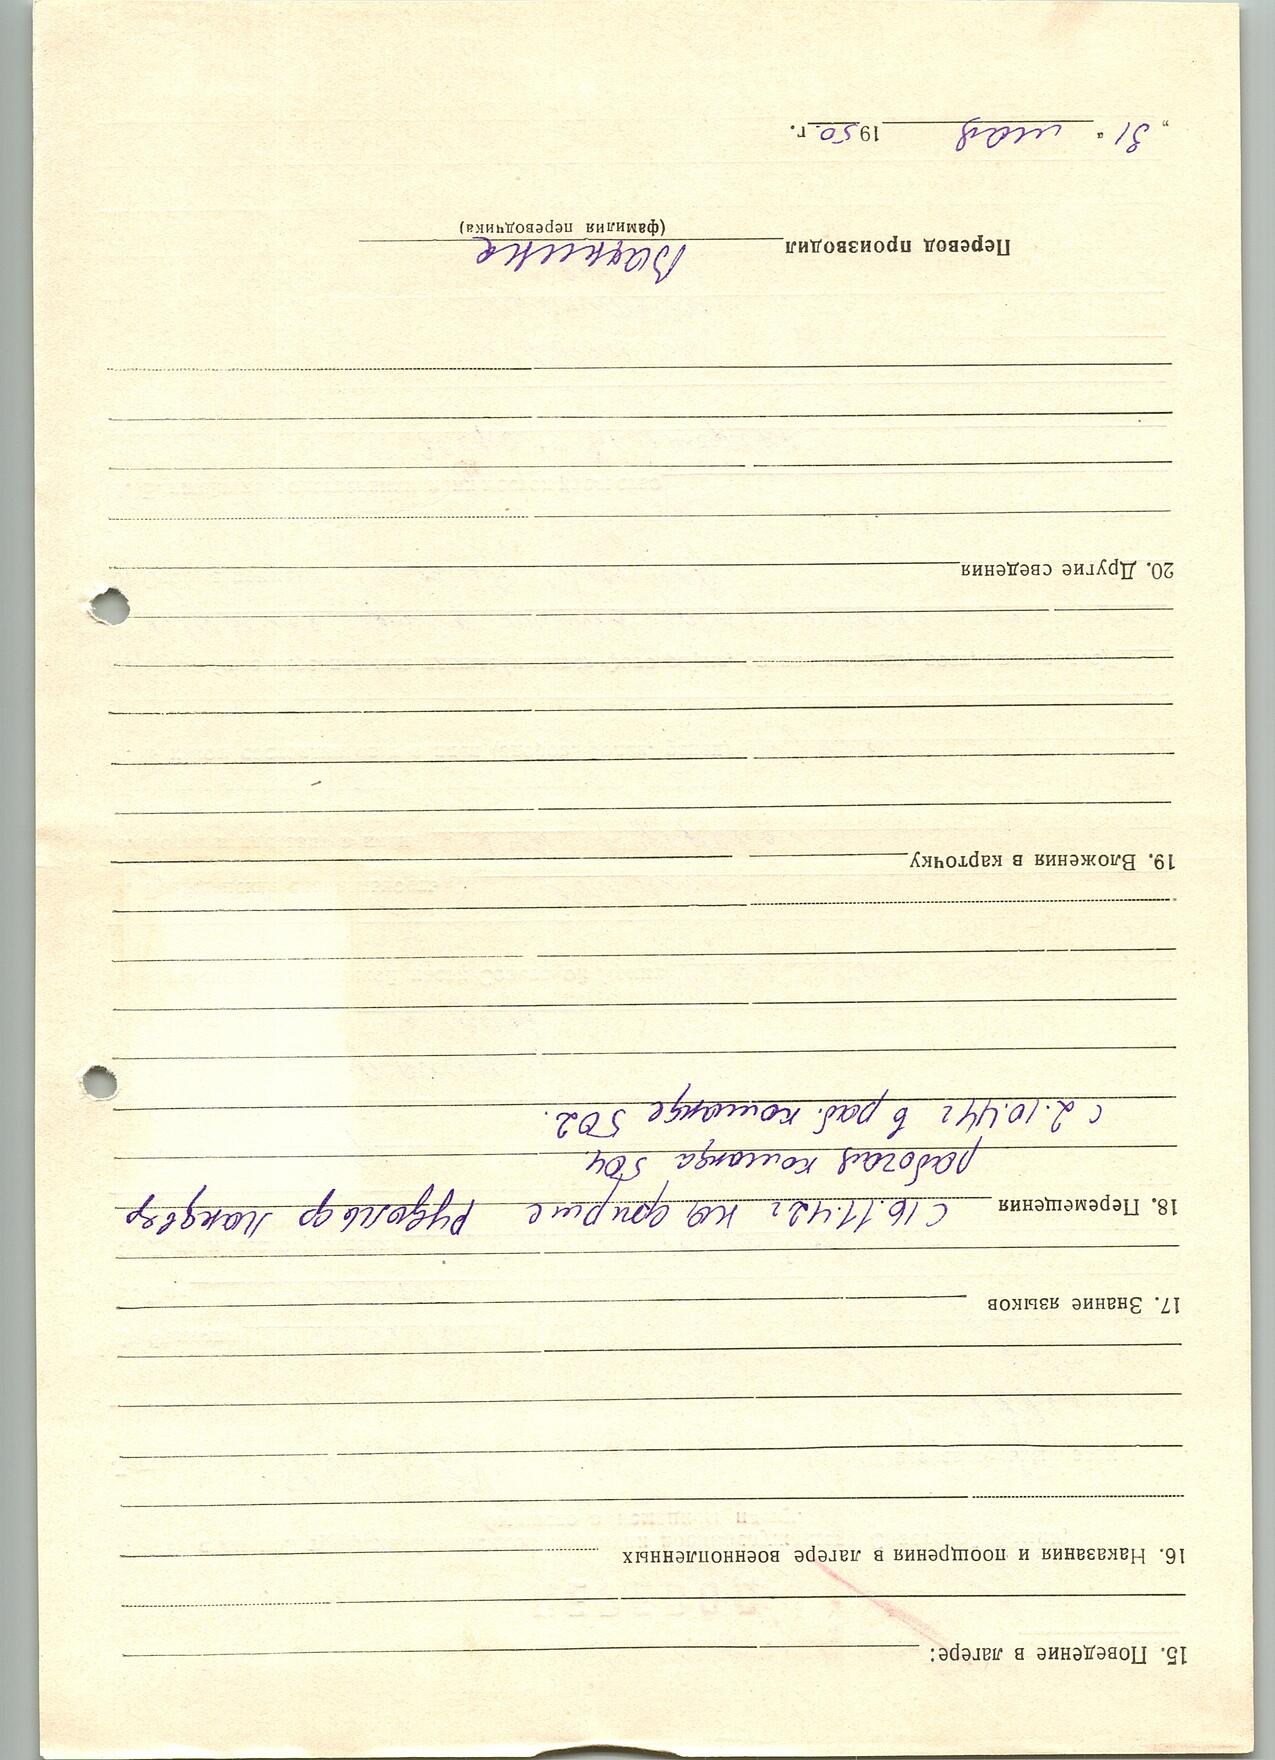 15. Поведение в лагере:
16. Наказания и поощрения в лагере военнопленных
17. Знание языков
18. Перемещения с 16.11.42 г на фирме Рудольф Лангвер
рабочая команда 504
с 2.10.44 г в раб. команде 502.
19. Вложения в карточку
20. Другие сведения
Перевод производил
(фамилия переводчика)
„31“ мая 1950 г.